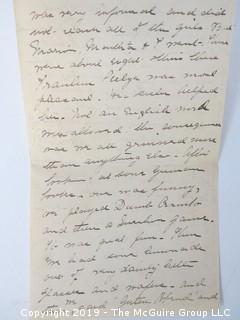 was very informal and did
not reach all of the girls. But
Marion, Martha & I went. There
were about eight others there
Fraulein was most
pleasant. her helped
her. Not an English word
was allowed the consequence
was we all grinned more
than anything else. After
looking at some German
books one was funny,
we played Dumb Crambo
and then a German game.
It was great fun. Then
we had some lemonade
out of very dainty little
glasses and wafers. and
said "Guten Abend" and
Copyright 2019 - The McGuire Group LLC